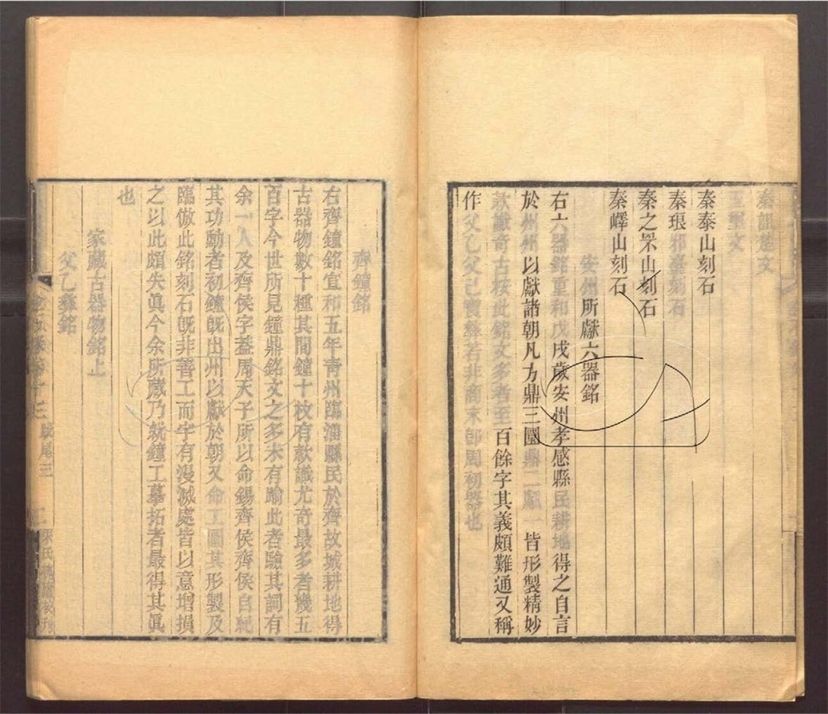 秦詛楚文
玉璽文
秦泰山刻石
秦琅邪臺刻石
秦之罘山刻石
秦嶧山刻石
安州所獻六器銘
右六器銘重和戊戌歲安州孝感縣民耕地得之自言
於州州以獻諸朝凡方鼎三圓鼎二甗一皆形製精妙
款識奇古按此銘文多者至百餘字其義頗難通又稱
作父乙父己寶彝若非商末卽周初器也
齊鐘銘
右齊鐘銘宣和五年青州臨淄縣民於齊故城耕地得
古器物數十種其間鐘十枚有款識尤奇最多者幾五
百字今世所見鐘鼎銘文之多未有踰此者驗其詞有
余一人及齊侯字蓋周天子所以命錫齊侯齊侯自紀
其功勳者初鐘旣出州以獻於朝又命工圖其形製及
臨倣此銘刻石旣非善工而字有漫滅處皆以意增損
之以此頗失眞今余所藏乃就鐘工摹拓者最得其眞
也
家藏古器物銘上
父乙彝銘